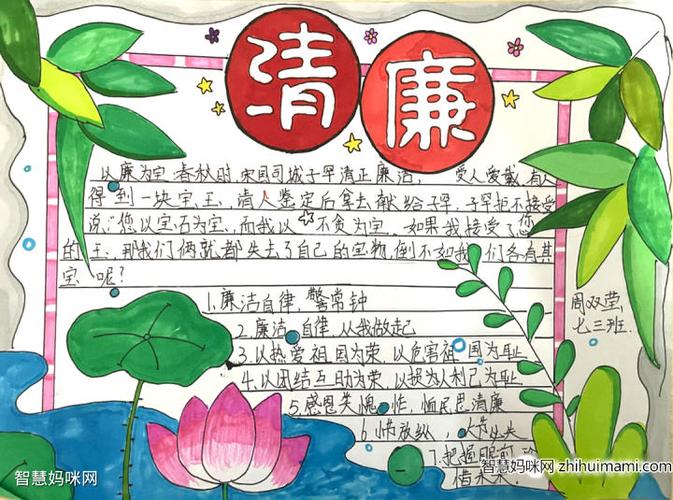 清廉
以廉为宝 春秋时,宋国司城子罕清正廉洁, 受人爱戴,有人
得到一块宝玉, 请人鉴定后拿去献给子罕,子罕拒不接受
说:您以宝石为宝,而我以 不贪为宝。如果我接受了您
的玉,那我们俩就都失去了自己的宝物,倒不如我 们各有其
宝 呢?
1.廉洁自律,警常钟
2.廉洁 自律,从我做起
3.以热爱祖国为荣,以危害祖 国为耻
4.以团结互助为荣,以损人利己为耻
5.感恩 恤民思清廉
6.惜放纵
7.把握眼前
借未来
周双莹
七三班
智慧妈咪网
智慧妈咪网
智慧妈咪网 zhihuimami.com